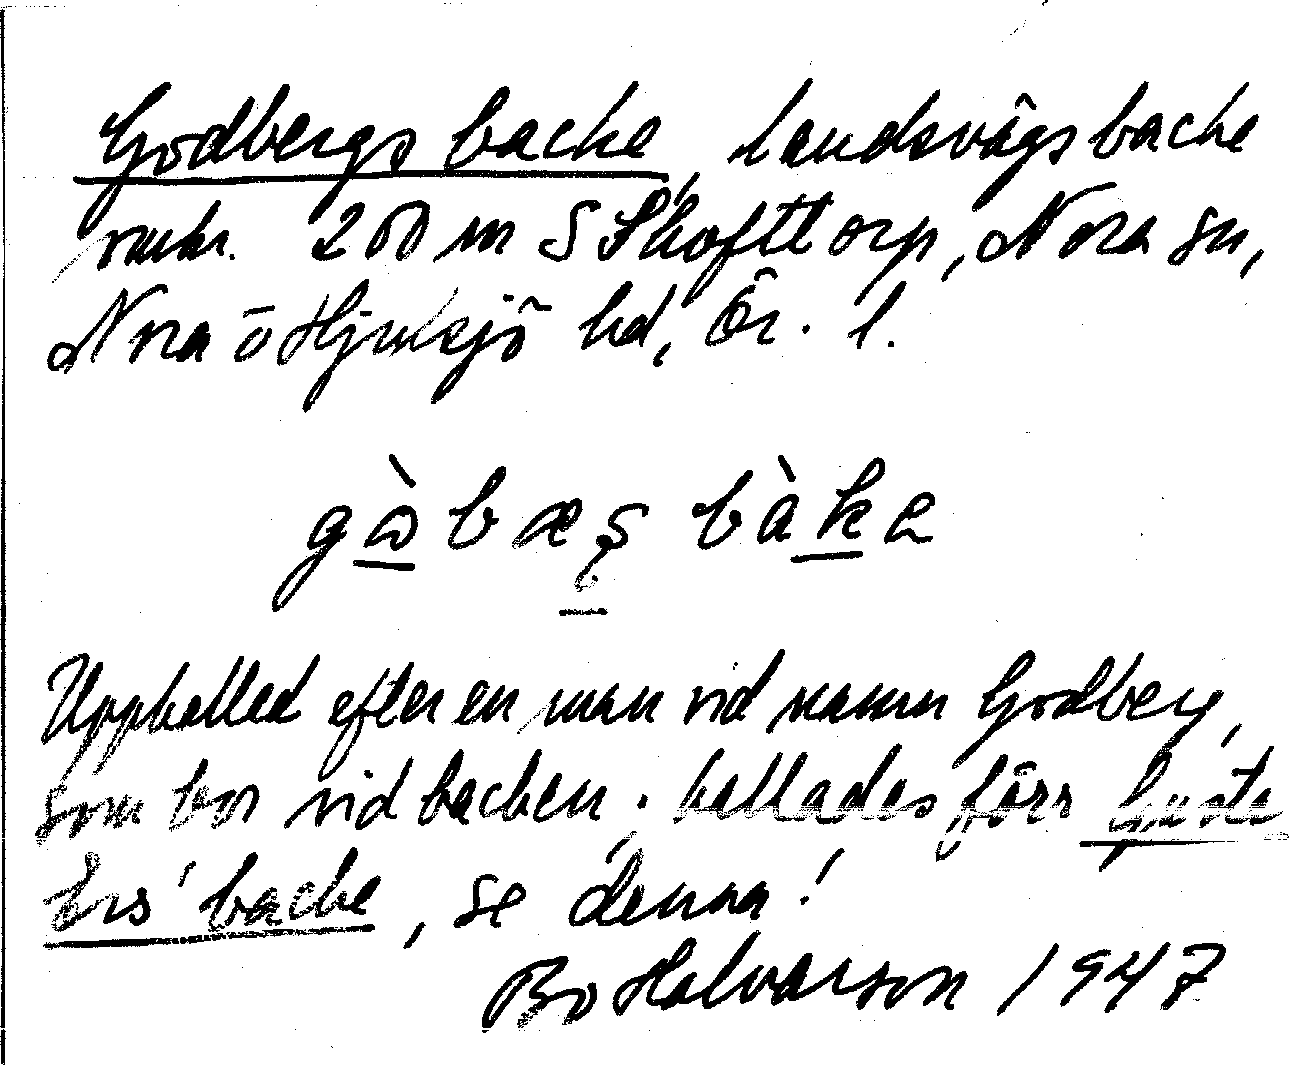 Godbergs backe, landsvägsbacke
omkr. 200 m S Skofttorp, Nora sn,
Nora o Hjulsjö hd, Ör. l.
gɷ̀bæs bàke
Uppkallad efter en man vid namn Godberg,
som bor vid backen; kallades förr Guste
Ers' backe, se denna!
Bo Halvarson 1947